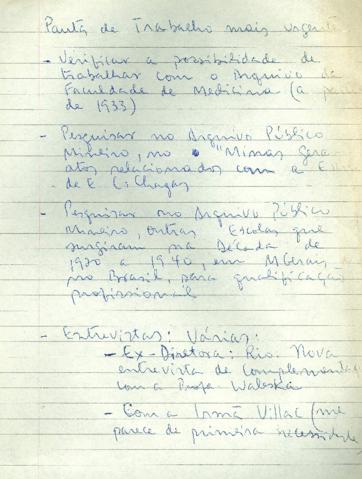 Pauta de Trabalho mais urgente
- Verificar a possibilidade de
trabalhar com o Arquivo da
Faculdade de Medicina (a
de 1933)
- Pesquisar no Arquivo Público
Mineiro, no "Minas Gerais
atos relacionados com a
de E. C. Chagas
- Pesquisar no Arquivo Público
Mineiro, outras Escolas que
surgiram na Década de
1930 a 1940, em MGerais,
no Brasil, para qualificação
profissional
- Entrevistas: Várias:
- Ex-Diretora: Rio. Nova
entrevista de complementa
com a Profa Waleska
- Com a Irmã Villac (me
parece de primeira necessidade